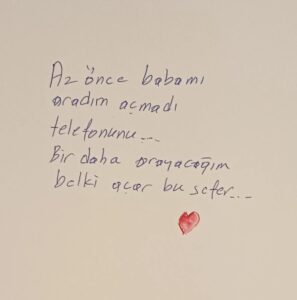 Az önce babamı
aradım açmadı
telefonunu...
Bir daha arayacağım
belki açar bu sefer...